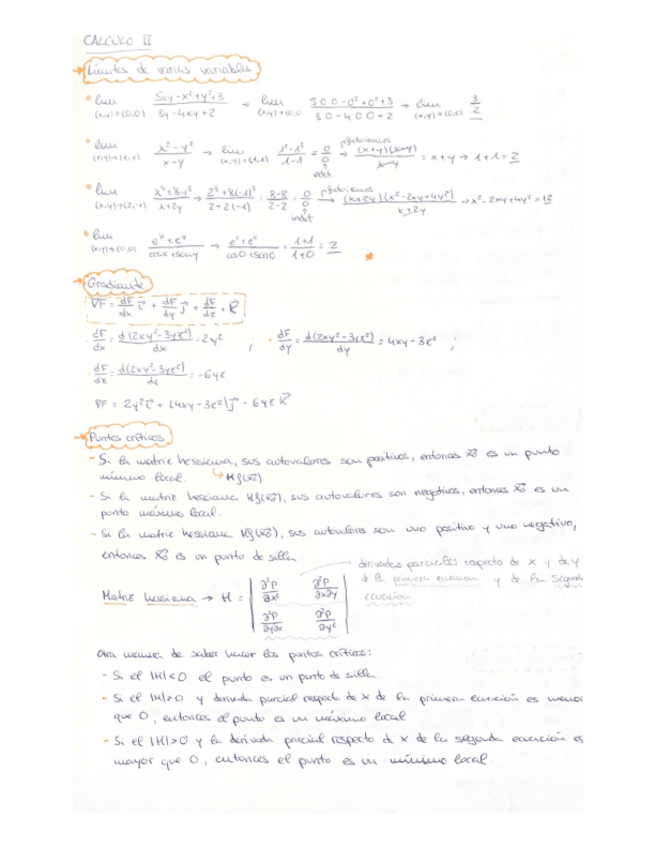 CALCULO II
→ Límites de varias variables
* lim (x,y)→(0,0) (5xy-x²+y²+3)/(3y-4xy+2) → lim (x,y)→(0,0) (5·0·0-0²+0²+3)/(3·0-4·0·0+2) → lim (x,y)→(0,0) 3/2
* lim (x,y)→(1,1) (x²-y²)/(x-y) → lim (x,y)→(1,1) (1²-1²)/(1-1) = 0/0 → (x+y)(x-y)/(x-y) = x+y → 1+1 = 2
indet
* lim (x,y)→(2,-1) (x³+8y³)/(x+2y) → (2³+8(-1)³)/(2+2(-1)) = (8-8)/(2-2) = 0/0 → (x+2y)(x²-2xy+4y²)/(x+2y) → x²-2xy+4y² = 12
indet
* lim (x,y)→(0,0) (eˣ+eʸ)/(cosx+seny) → (e⁰+e⁰)/(cos0+sen0) = (1+1)/(1+0) = 2
→ Gradiante
∇F = dF/dx i + dF/dy j + dF/dz K
· dF/dx = d(2xy²-3yz²)/dx = 2y² ; · dF/dy = d(2xy²-3yz²)/dy = 4xy-3z² ;
· dF/dz = d(2xy²-3yz²)/dz = -6yz
∇F = 2y² i + (4xy-3z²) j - 6yz K
→ Puntos críticos
- Si la matriz hessiana, sus autovalores son positivos, entonces x₀ es un punto
mínimo local. ↳ Hf(x₀)
- Si la matriz hessiana Hf(x₀), sus autovalores son negativos, entonces x₀ es un
punto máximo local.
- Si la matriz hessiana Hf(x₀), sus autovalores son uno positivo y uno negativo,
entonces x₀ es un punto de silla.
derivadas parciales respecto de x y de y
de la primera ecuacion y de la segunda
ecuacion
Matriz hessiana → H = | ∂²P/∂x² ∂²P/∂x∂y |
| ∂²P/∂y∂x ∂²P/∂y² |
Otra manera de saber hacer los puntos críticos:
- Si el |H|<0 el punto es un punto de silla.
- Si el |H|>0 y derivada parcial respecto de x de la primera ecuación es menor
que 0, entonces el punto es un máximo local
- Si el |H|>0 y la derivada parcial respecto de x de la segunda ecuación es
mayor que 0, entonces el punto es un mínimo local.